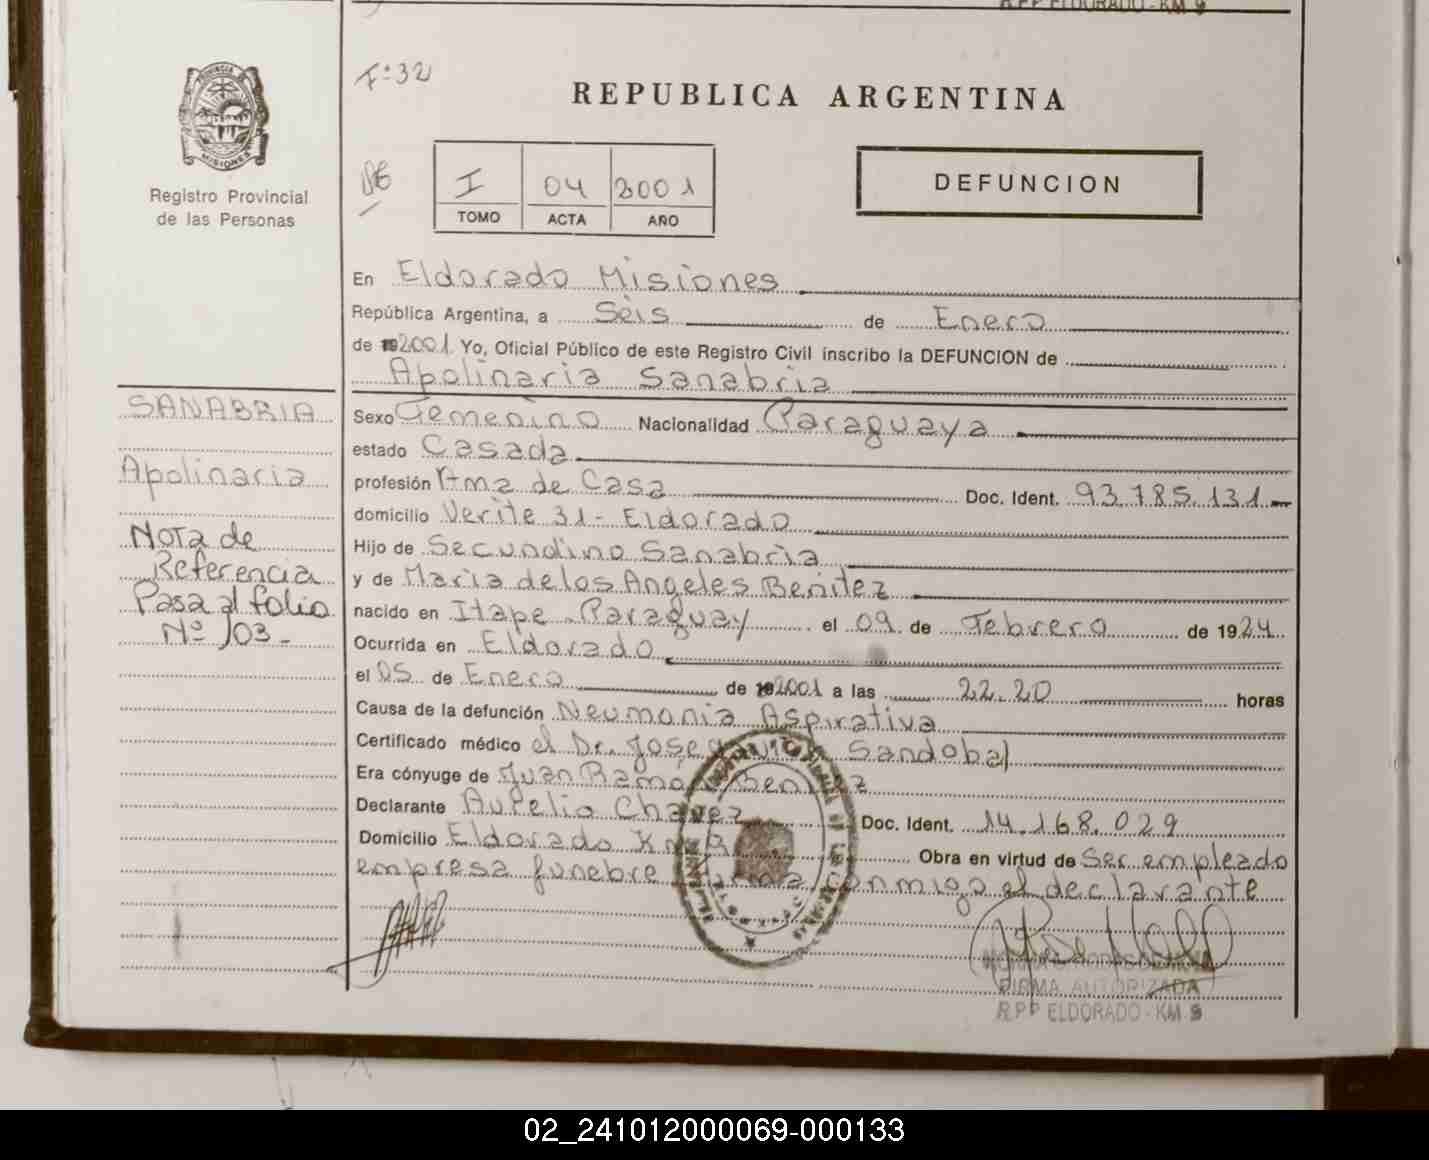 R.P.P ELDORADO - KM 9
Fº 32
REPUBLICA ARGENTINA
PROVINCIA DE
MISIONES
Registro Provincial
de las Personas
I 04 2001
TOMO ACTA AÑO
DEFUNCION
En Eldorado Misiones
República Argentina, a Seis de Enero
de 192001 Yo, Oficial Público de este Registro Civil inscribo la DEFUNCION de
Apolinaria Sanabria
SANABRIA
Apolinaria
Nota de
Referencia
Pasa al folio
Nº 103-
Sexo Femenino Nacionalidad Paraguaya
estado Casada
profesión Ama de Casa Doc. Ident. 93.785.131-
domicilio Verite 31 - Eldorado
Hijo de Secundino Sanabria
y de Maria de los Angeles Benitez
nacido en Itape - Paraguay el 09 de Febrero de 1924
Ocurrida en Eldorado
el 05 de Enero de 192001 a las 22.20 horas
Causa de la defunción Neumonia Aspirativa
Certificado médico el Dr. Jose Sandobal
Era cónyuge de Juan Ramón Benitez
Declarante Aurelio Chavez Doc. Ident. 14.168.029
Domicilio Eldorado Km 9 Obra en virtud de Ser empleado
empresa funebre firma conmigo el declarante
FIRMA AUTORIZADA
R.P.P ELDORADO - KM 9
02_241012000069-000133